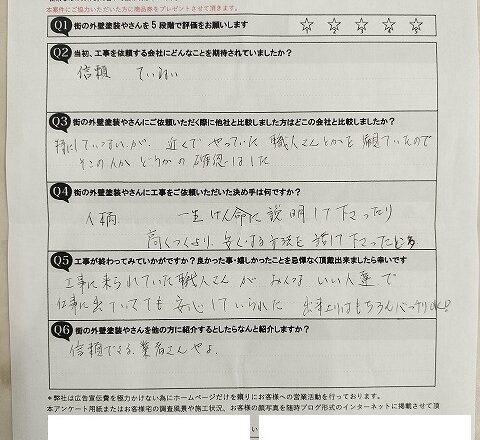 本案件にご協力いただいた方に商品券をプレゼントさせて頂きます。
Q1 街の外壁塗装やさんを5段階で評価をお願いします ☆ ☆ ☆ ☆ ☆
Q2 当初、工事を依頼する会社にどんなことを期待されていましたか?
信頼 ていねい
Q3 街の外壁塗装やさんにご依頼いただく際に他社と比較しました方はどこの会社と比較しましたか?
特にしていないが、近くでやっていた職人さんとかを観ていたので
その人かどうかの確認はした
Q4 街の外壁塗装やさんに工事をご依頼いただいた決め手は何ですか?
人柄 一生けん命に説明して下さったり
高くつくより、安くする方法を 下さったところ
Q5 工事が終わってみていかがですか?良かった事・嬉しかったことを忌憚なく頂戴出来ましたら幸いです
工事に来られていた職人さんがみんないい人達で
仕事に出ていても安心していられた 出来上りはもちろんバッチリOK!
Q6 街の外壁塗装やさんを他の方に紹介するとしたらなんと紹介しますか?
信頼できる業者さんやよ。
*弊社は広告宣伝費を極力かけない為にホームページだけを頼りにお客様への営業活動を行っております。
本アンケート用紙またはお客様宅の調査風景や施工状況、お客様の顔写真を随時ブログ形式のインターネットに掲載させて頂
い